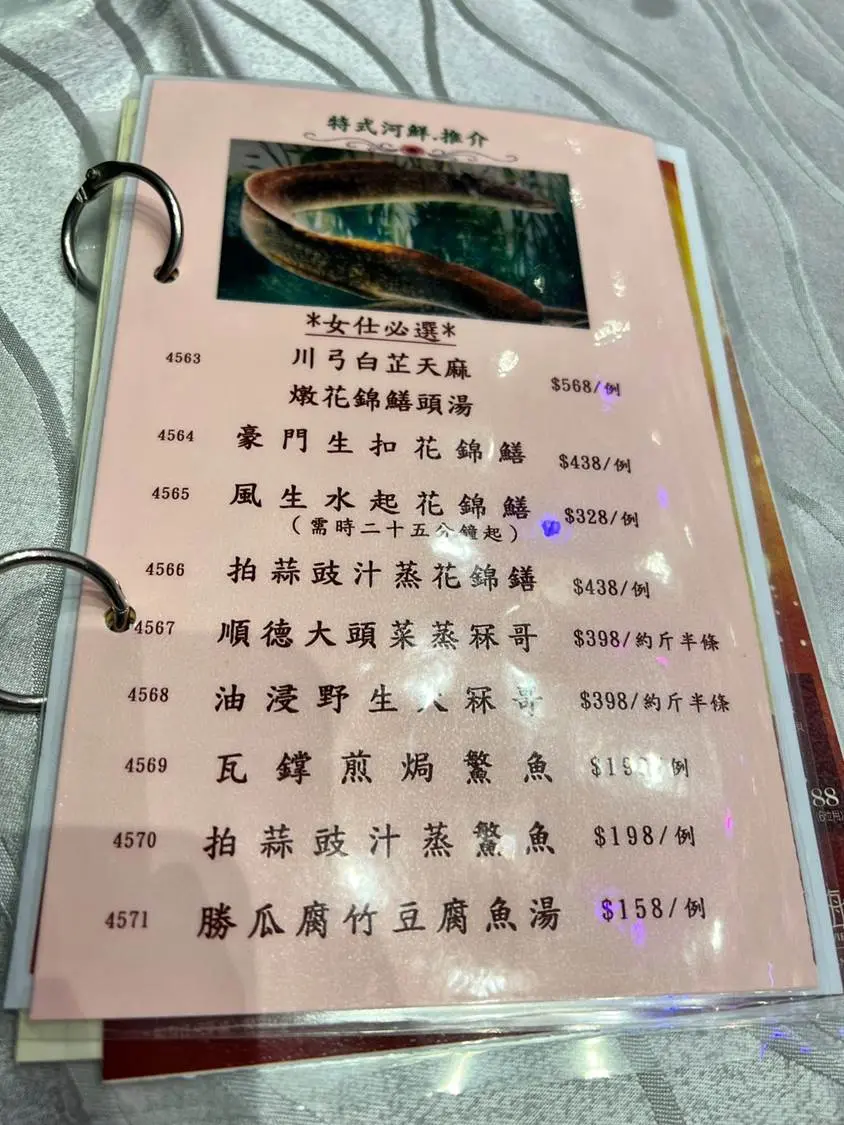 特式河鮮.推介
*女仕必選*
4563 川弓白芷天麻
燉花錦鱔頭湯 $568/例
4564 豪門生扣花錦鱔 $438/例
4565 風生水起花錦鱔 $328/例
(需時二十五分鐘起)
4566 拍蒜豉汁蒸花錦鱔 $438/例
4567 順德大頭菜蒸冧哥 $398/約斤半條
4568 油浸野生大冧哥 $398/約斤半條
4569 瓦鐣煎焗鱉魚 例
4570 拍蒜豉汁蒸鱉魚 $198/例
4571 勝瓜腐竹豆腐魚湯 $158/例
88